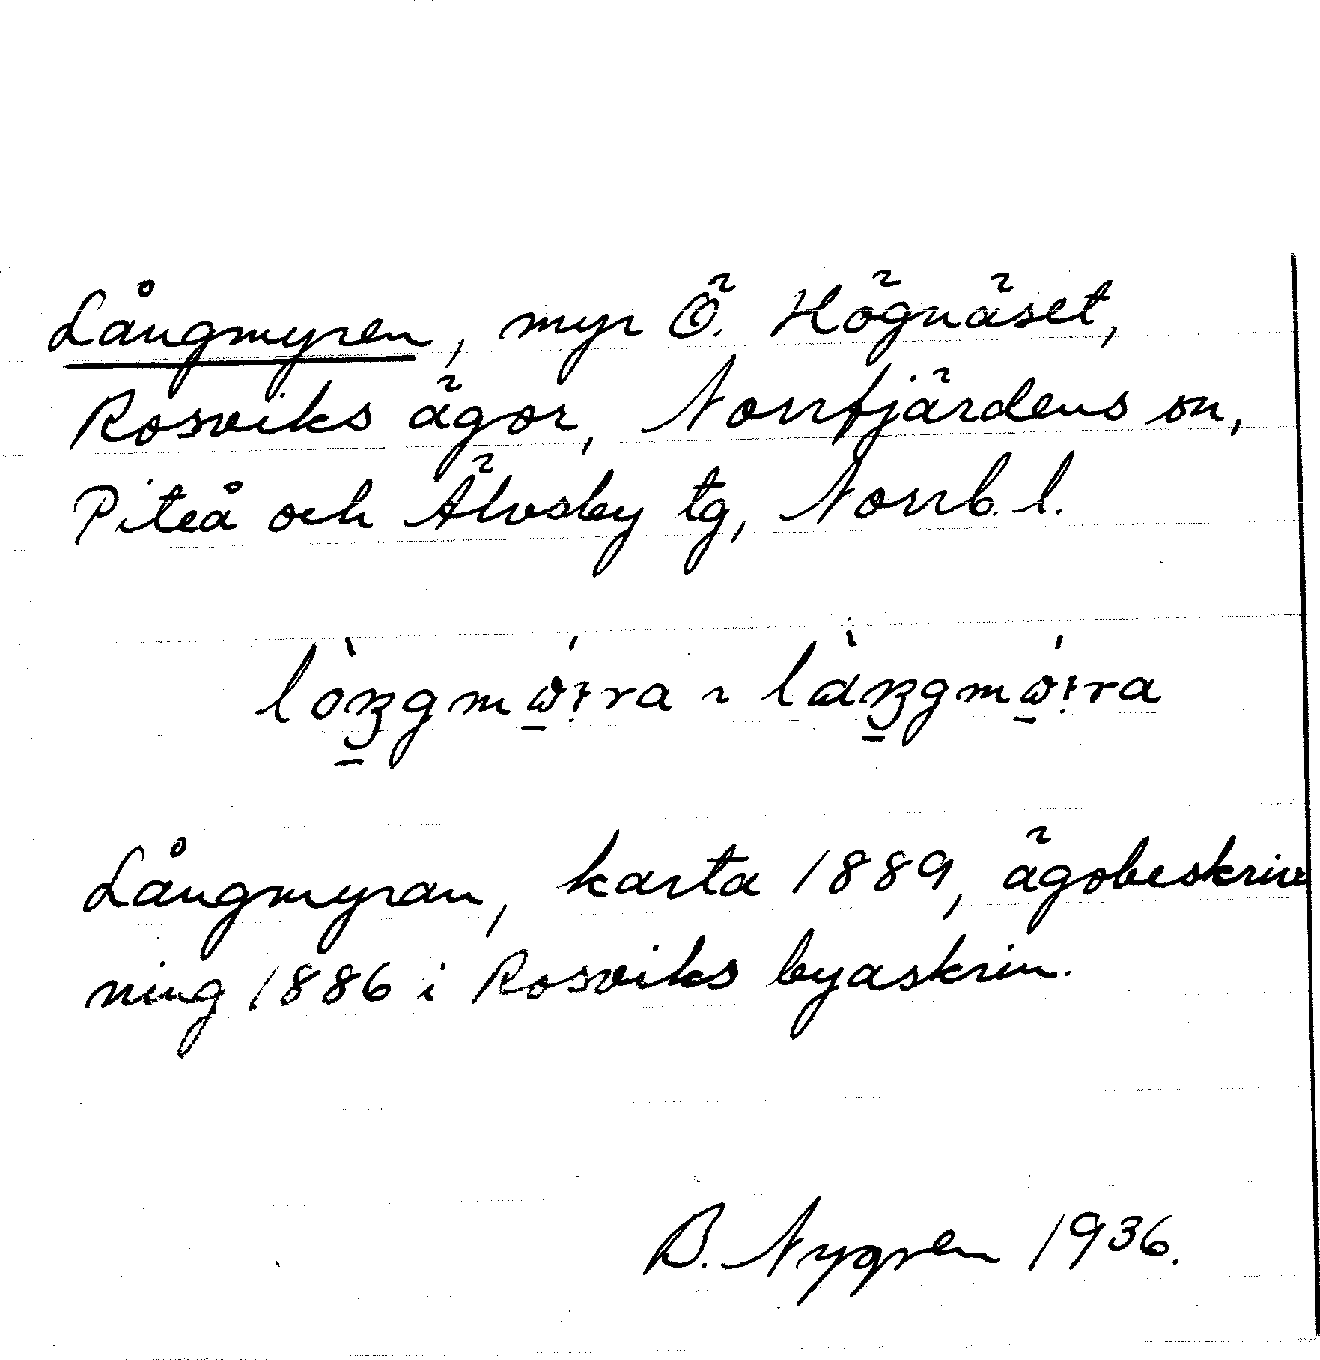 Långmyren, myr Ö. Högnäset,
Rosviks ägor, Norrfjärdens sn,
Piteå och Älvsby tg, Norrb. l.
Långmyran, karta 1889, ägobeskriv
ning 1886 i Rosviks byaskrin.
B. Nygren 1936.